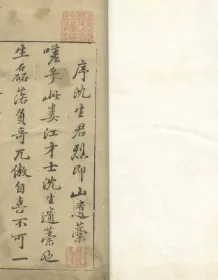 序沈生君烈即山遺藁
嗟乎此婁江才士沈生遺藁也
生磊落負奇兀傲自喜不可一